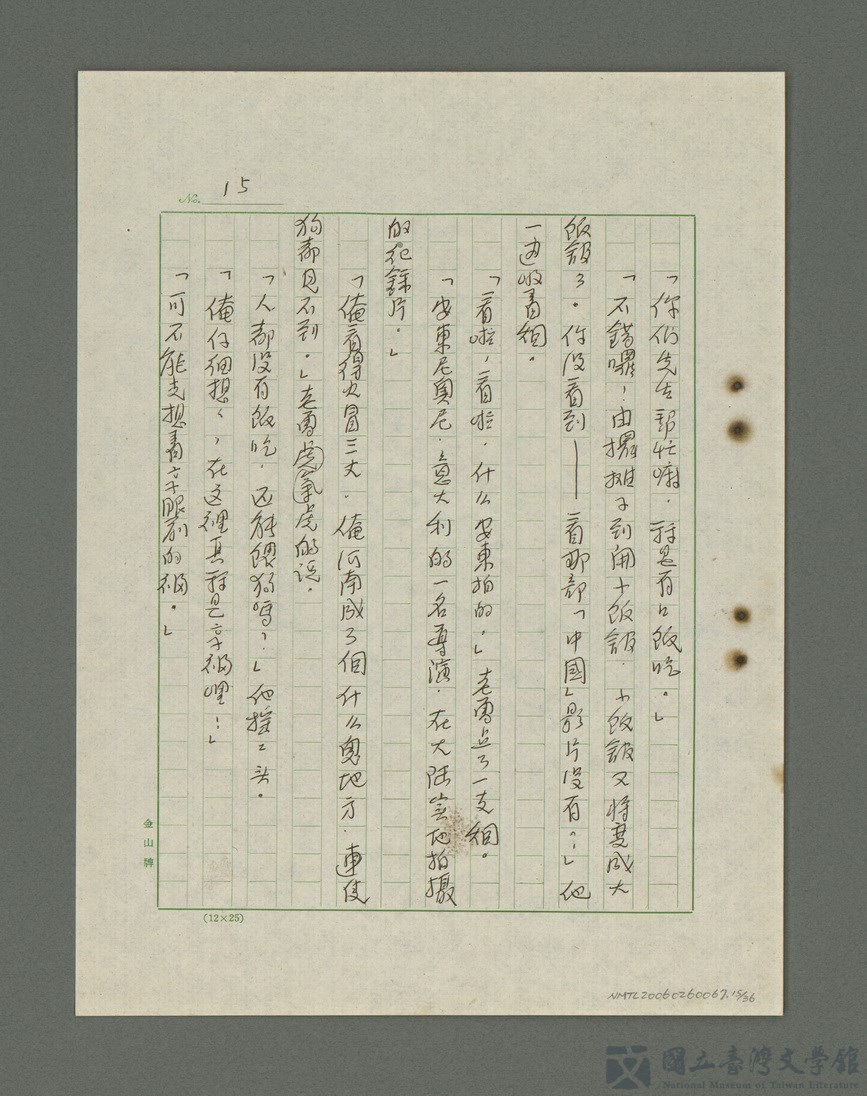 No. 15
「你們先生幫忙嘛．算是有口飯吃。」
「不錯囉！由擺攤子到開小飯館．小飯館又將變成大
飯館了。你沒看到——看那部「中國」影片沒有？」他
一边收書細。
「看啦，看啦．什么安東拍的。」老曹点了一支烟。
「安東尼奧尼．意大利的一名導演．在大陸实地拍攝
的纪錄片。」
「俺看得火冒三丈．俺河南成了個什么鬼地方．連隻
狗都見不到。」老曹虎虎的説。
「人都没有飯吃．还能餵狗嗎？」他搖搖头。
「俺仔細想想，在这裡真算是享福哩！」
「可不能忘想着享眼前的福。」
金山牌
(12×25)
NMTL20060260067.15/36
國立臺灣文學館
National Museum of Taiwan Literature